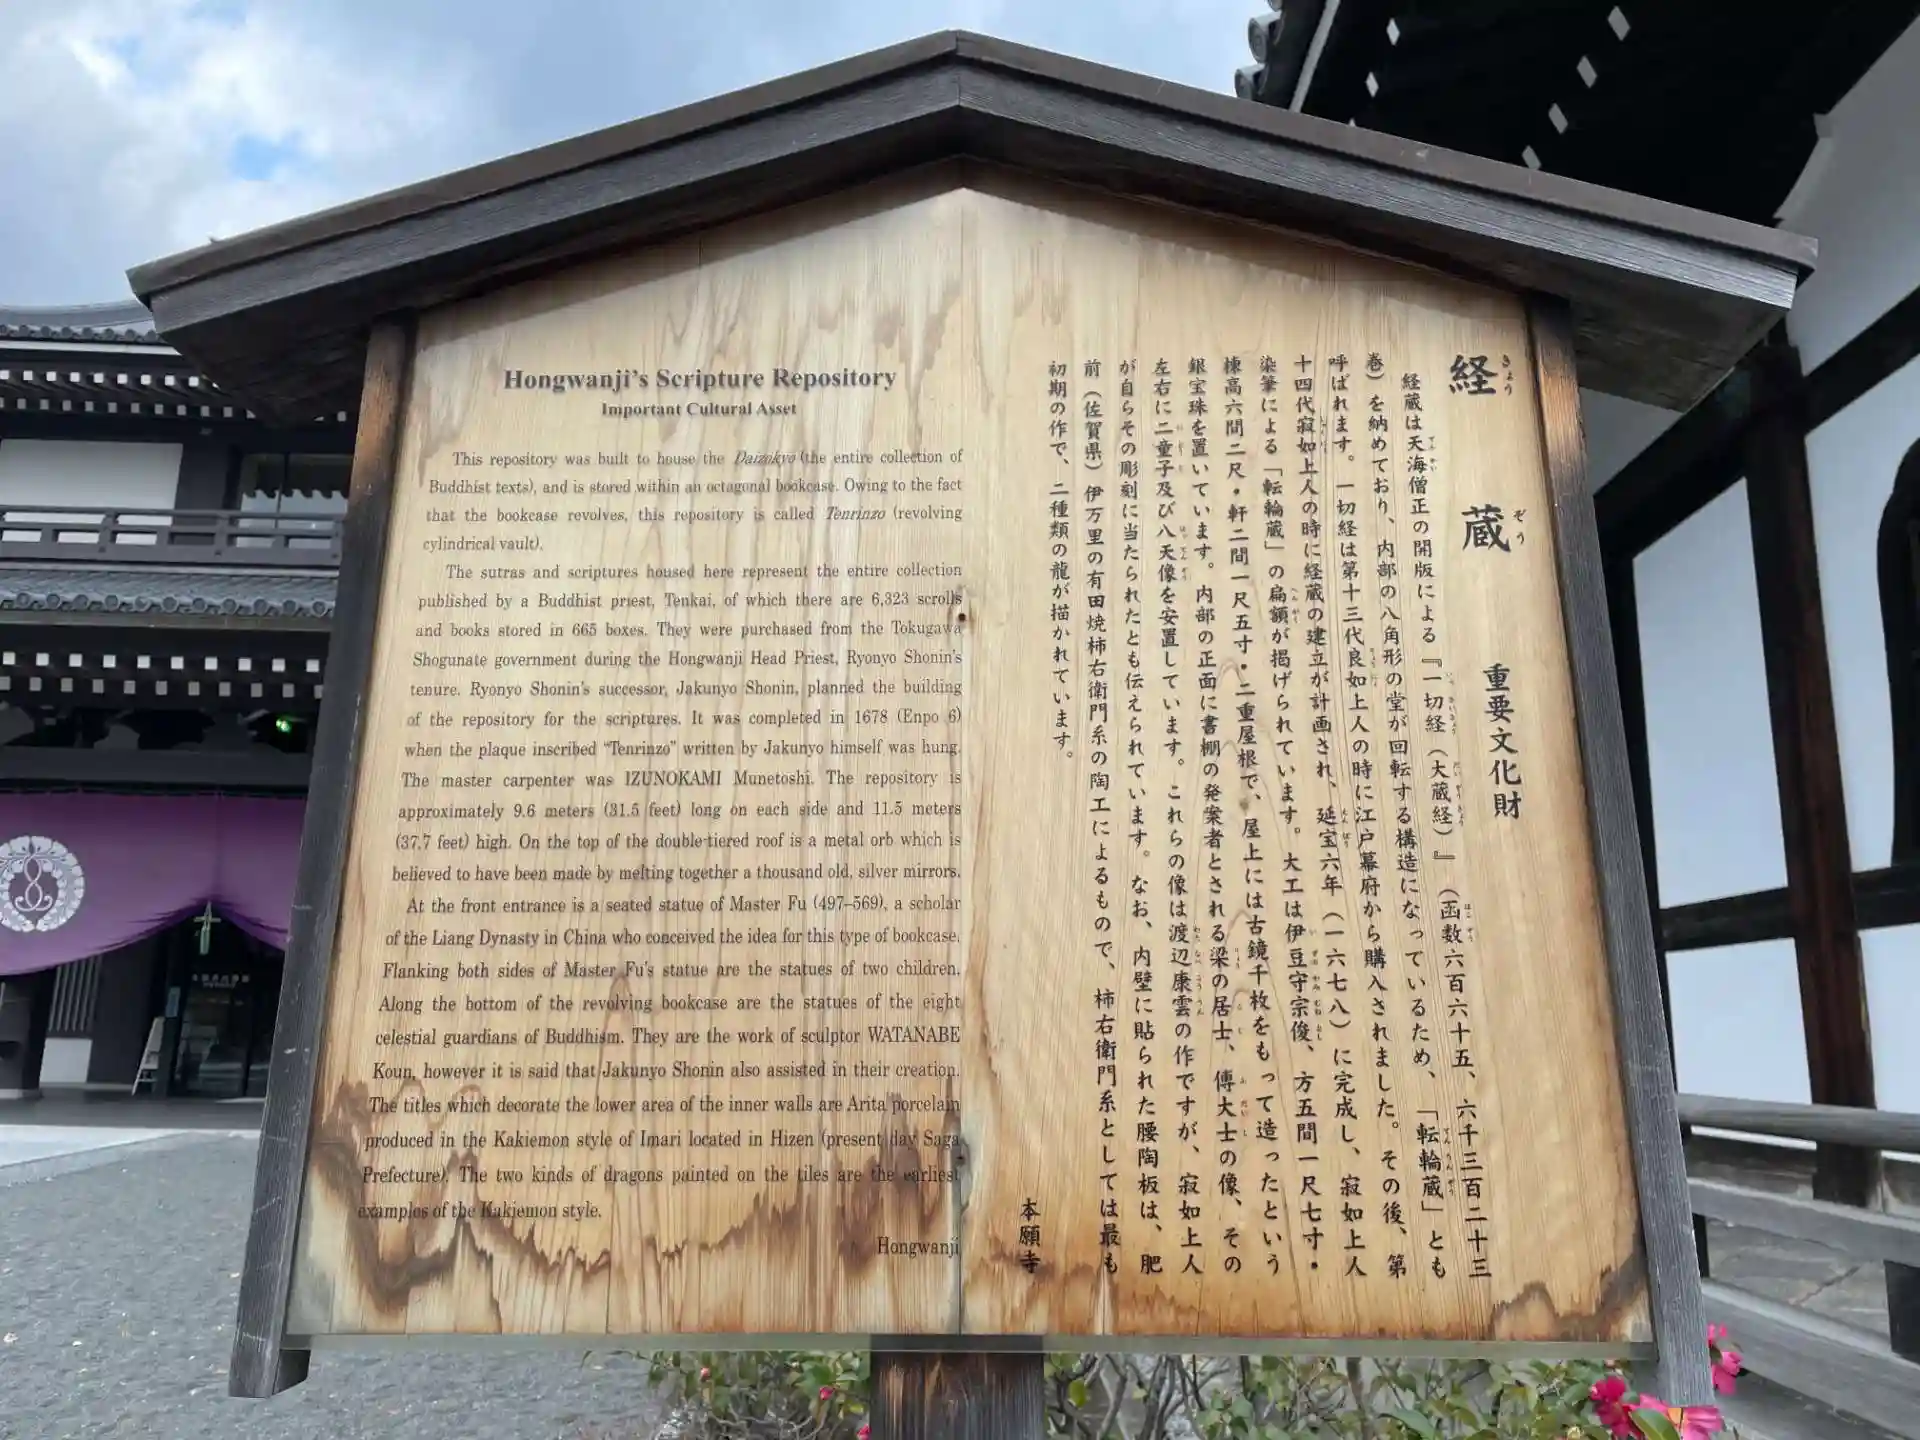 Hongwanji's Scripture Repository
Important Cultural Asset
This repository was built to house the Daizokyo (the entire collection of
Buddhist texts), and is stored within an octagonal bookcase. Owing to the fact
that the bookcase revolves, this repository is called Tenrinzo (revolving
cylindrical vault).
The sutras and scriptures housed here represent the entire collection
published by a Buddhist priest, Tenkai, of which there are 6,323 scrolls
and books stored in 665 boxes. They were purchased from the Tokugawa
Shogunate government during the Hongwanji Head Priest, Ryonyo Shonin's
tenure. Ryonyo Shonin's successor, Jakunyo Shonin, planned the building
of the repository for the scriptures. It was completed in 1678 (Enpo 6)
when the plaque inscribed “Tenrinzo” written by Jakunyo himself was hung.
The master carpenter was IZUNOKAMI Munetoshi. The repository is
approximately 9.6 meters (31.5 feet) long on each side and 11.5 meters
(37.7 feet) high. On the top of the double-tiered roof is a metal orb which is
believed to have been made by melting together a thousand old, silver mirrors.
At the front entrance is a seated statue of Master Fu (497–569), a scholar
of the Liang Dynasty in China who conceived the idea for this type of bookcase.
Flanking both sides of Master Fu's statue are the statues of two children.
Along the bottom of the revolving bookcase are the statues of the eight
celestial guardians of Buddhism. They are the work of sculptor WATANABE
Koun, however it is said that Jakunyo Shonin also assisted in their creation.
The titles which decorate the lower area of the inner walls are Arita porcelain
produced in the Kakiemon style of Imari located in Hizen (present day Saga
Prefecture). The two kinds of dragons painted on the tiles are the earliest
examples of the Kakiemon style.
Hongwanji
経蔵 重要文化財
きょう ぞう
経蔵は天海僧正の開版による『一切経（大蔵経）』（函数六百六十五、六千三百二十三
巻）を納めており、内部の八角形の堂が回転する構造になっているため、「転輪蔵」とも
呼ばれます。一切経は第十三代良如上人の時に江戸幕府から購入されました。その後、第
十四代寂如上人の時に経蔵の建立が計画され、延宝六年（一六七八）に完成し、寂如上人
染筆による「転輪蔵」の扁額が掲げられています。大工は伊豆守宗俊、方五間一尺七寸・
棟高六間二尺・軒二間一尺五寸・二重屋根で、屋上には古鏡千枚をもって造ったという
銀宝珠を置いています。内部の正面に書棚の発案者とされる梁の居士、傅大士の像、その
左右に二童子及び八天像を安置しています。これらの像は渡辺康雲の作ですが、寂如上人
が自らその彫刻に当たられたとも伝えられています。なお、内壁に貼られた腰陶板は、肥
前（佐賀県）伊万里の有田焼柿右衛門系の陶工によるもので、柿右衛門系としては最も
初期の作で、二種類の龍が描かれています。
本願寺